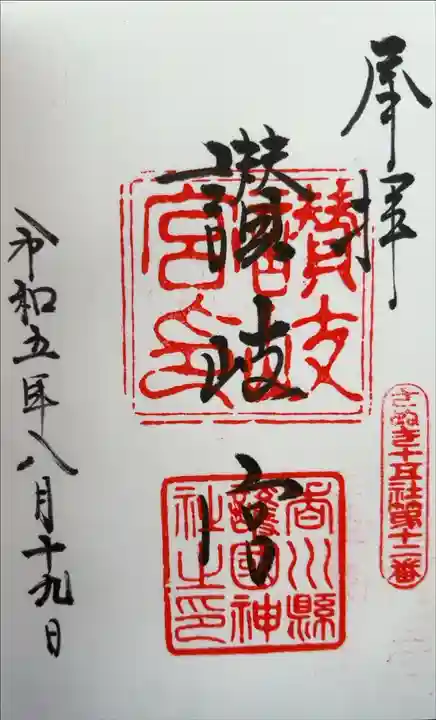 奉拝
さぬき十五社第十二番
讃岐宮
讃岐宮印
香川縣護國神社之印
令和五年八月十九日